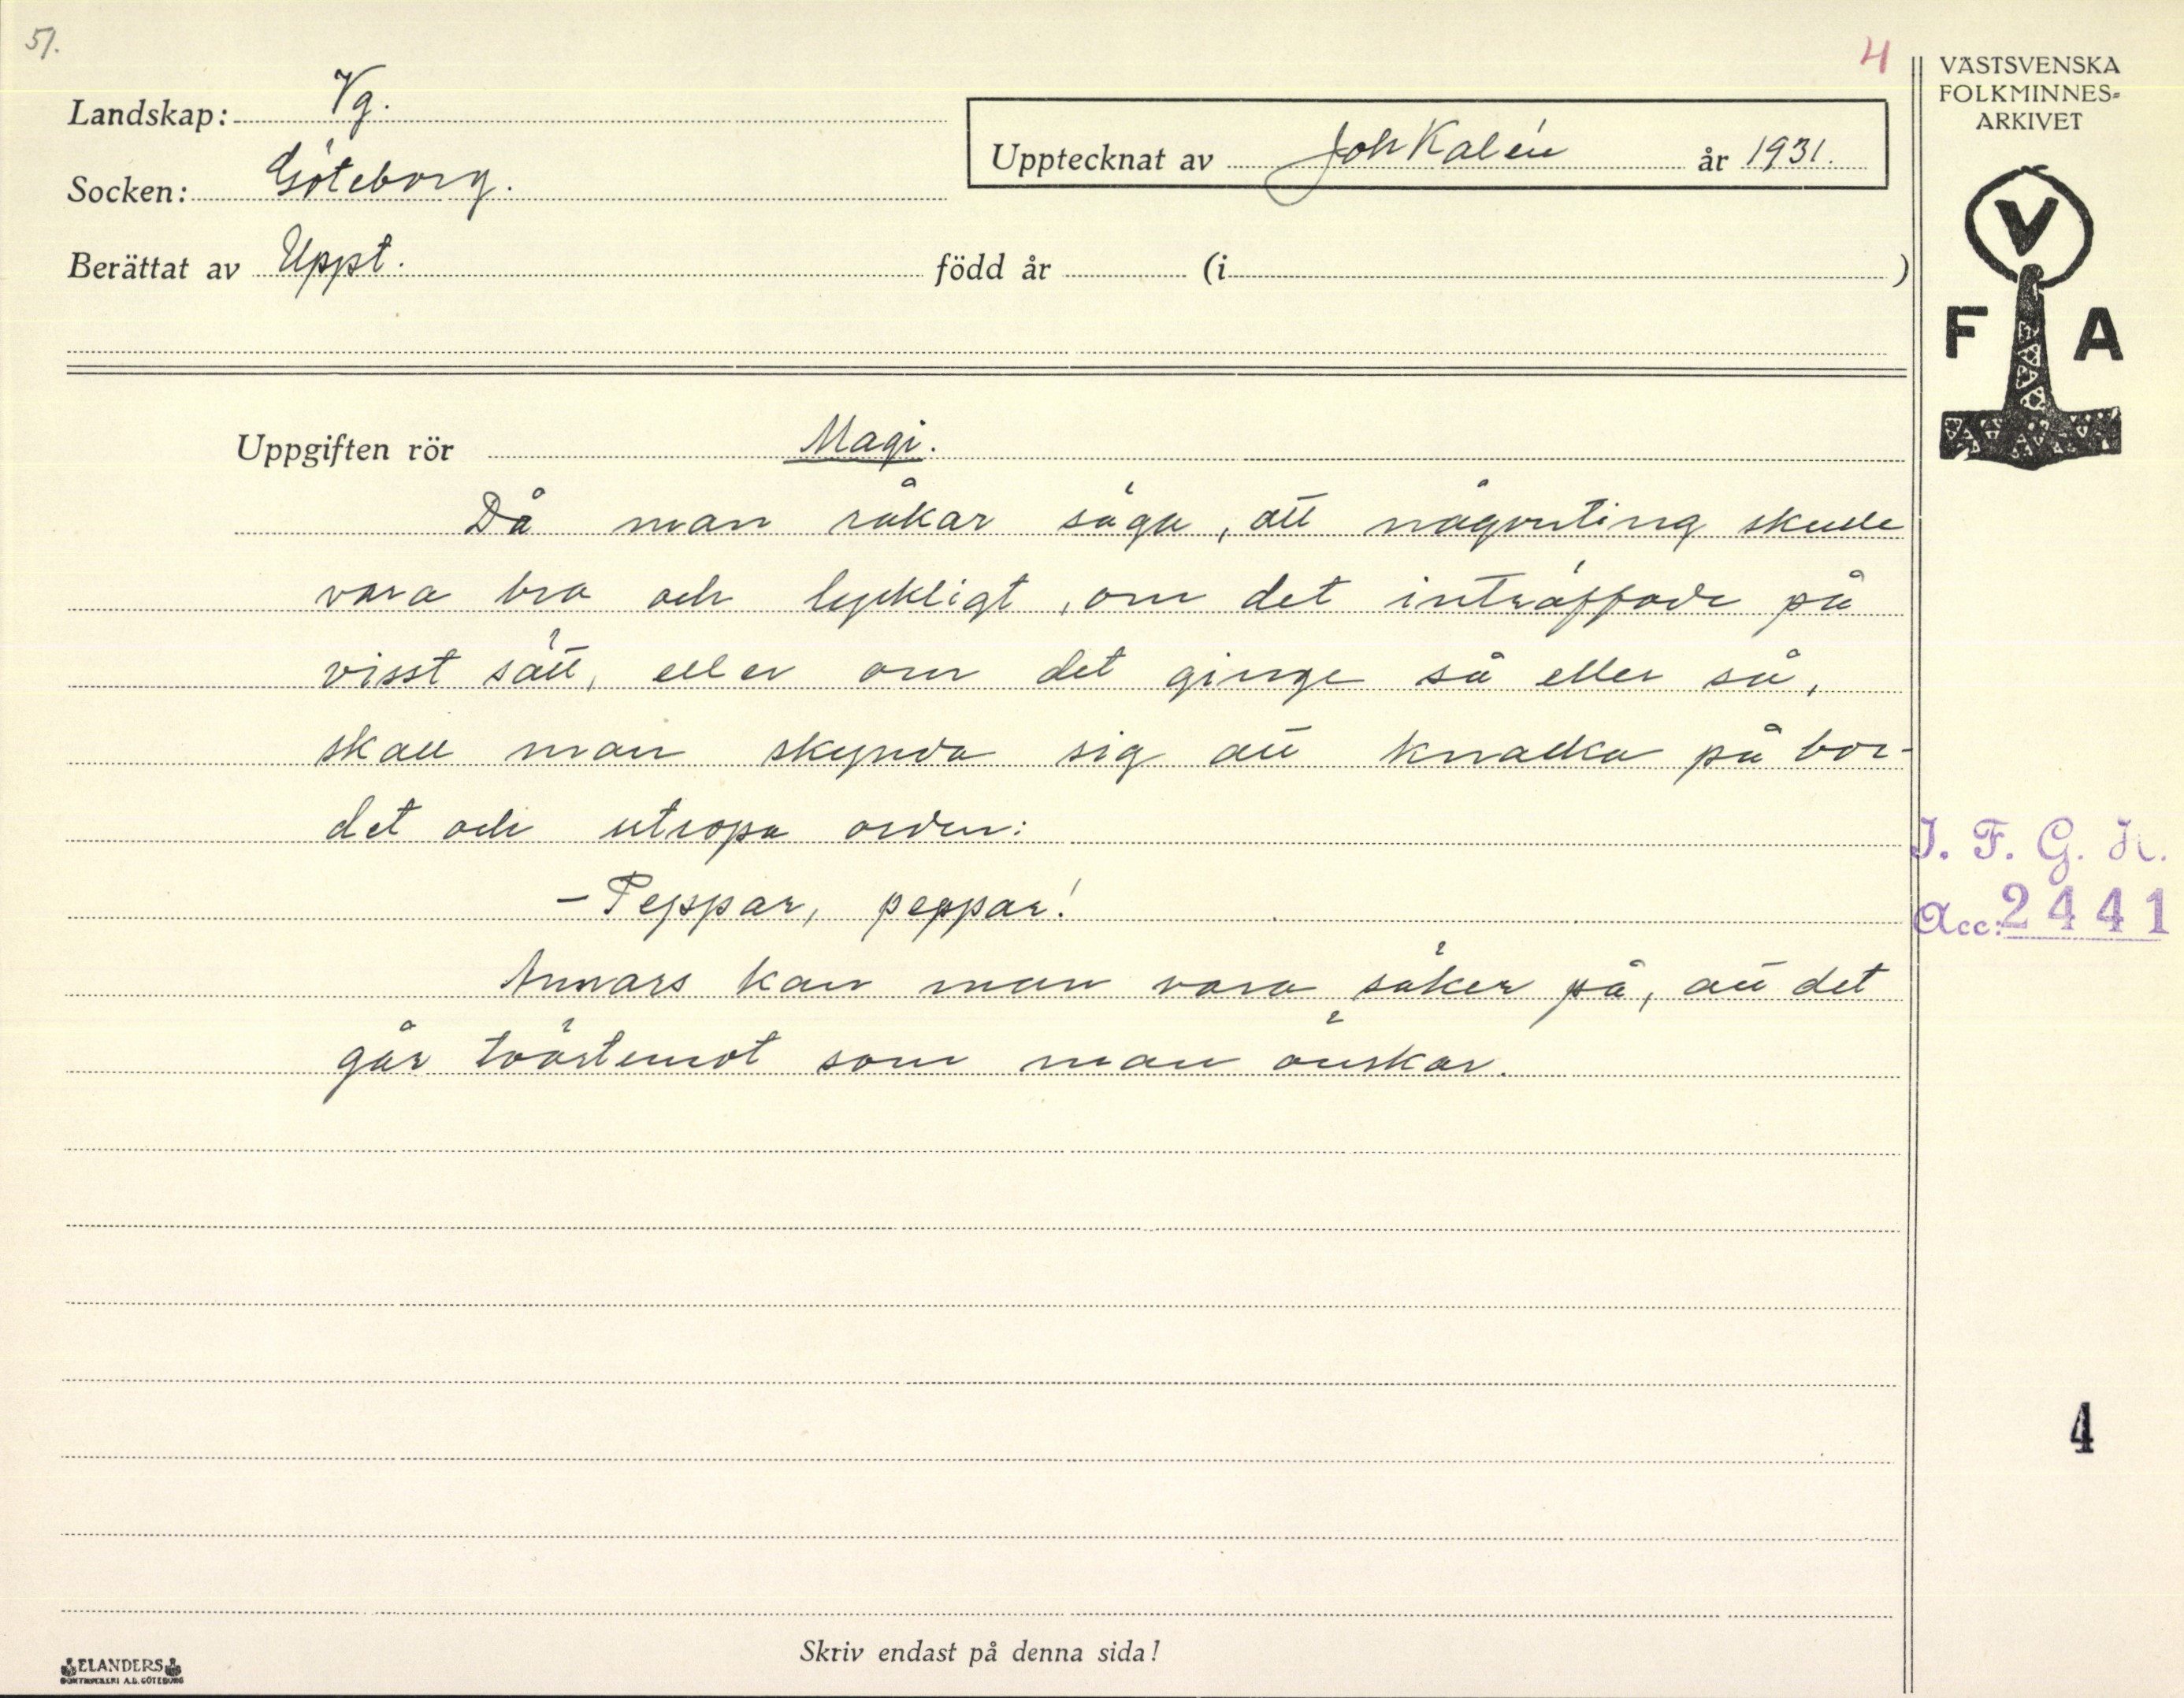 51.
4
Landskap: Vg.
Socken: Göteborg.
Berättat av Uppt. född år (i )
Upptecknat av Joh Kalén år 1931.
VÄSTSVENSKA
FOLKMINNES=
ARKIVET
V
F A
Uppgiften rör Magi.
Då man råkar säga, att någonting skulle
vara bra och lyckligt, om det inträffade på
visst sätt, eller om det ginge så eller så,
skall man skynda sig att knacka på bor-
det och utropa orden:
– Peppar, peppar!
Annars kan man vara säker på, att det
går tvärtemot som man önskar.
I. F. G. H.
Acc: 2441
4
Skriv endast på denna sida!
ELANDERS
BOKTRYCKERI A.B. GÖTEBORG